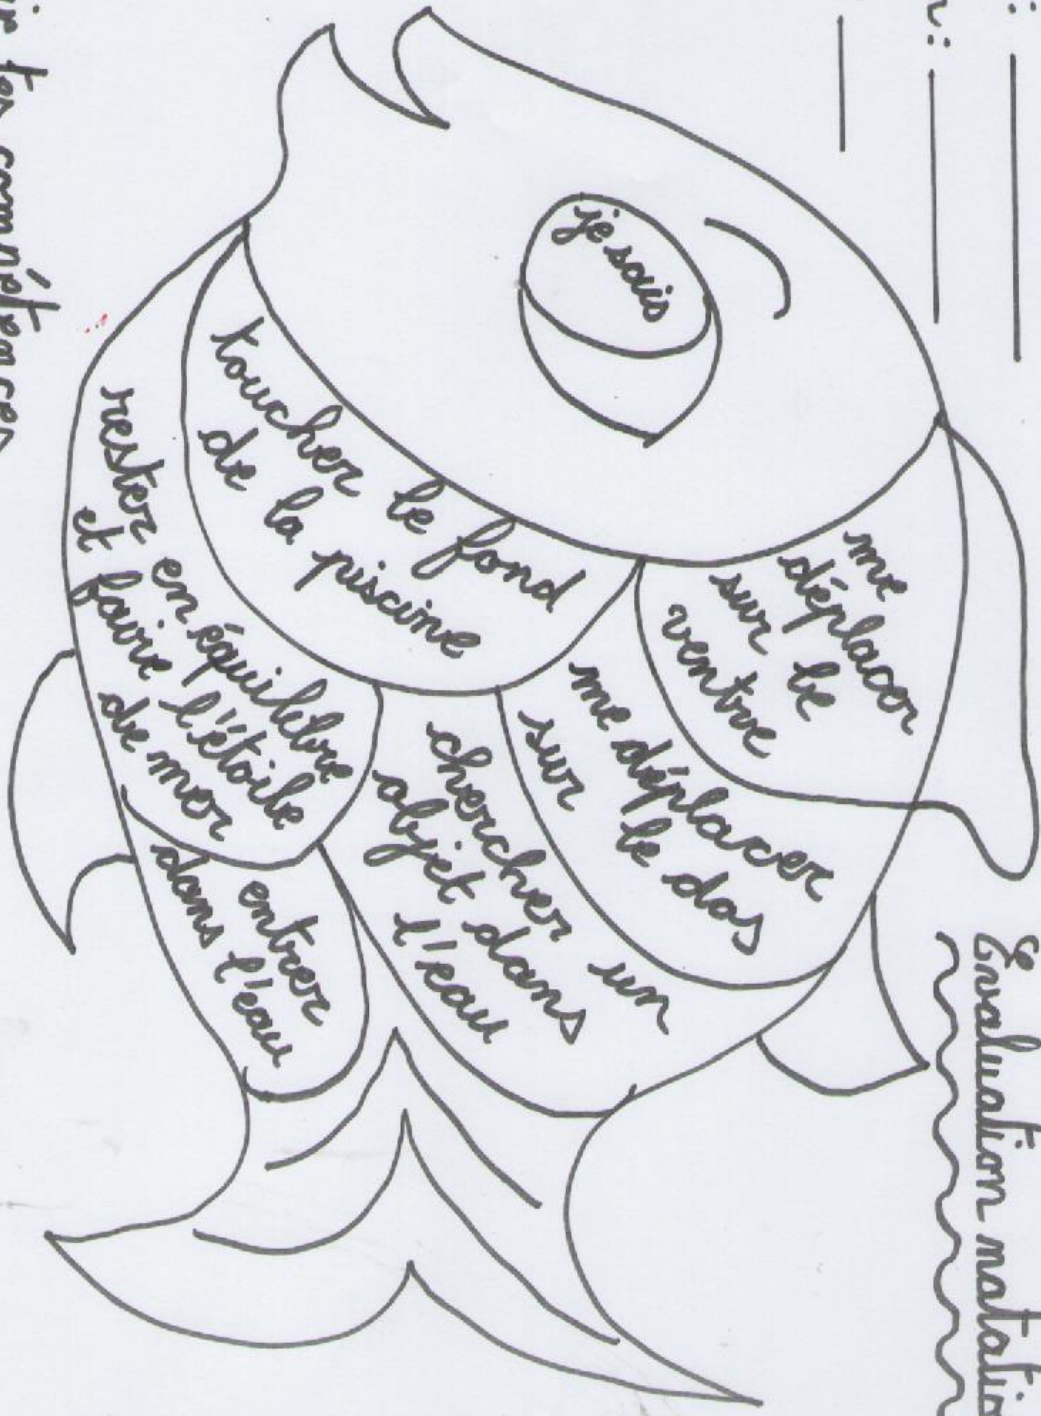 Evaluation natatio
je sais
me
déplacer
sur le
ventre
me déplacer
sur le dos
toucher le fond
de la piscine
chercher un
objet dans
l'eau
rester en équilibre
et faire l'étoile
de mer
entrer
dans l'eau
tes compétences